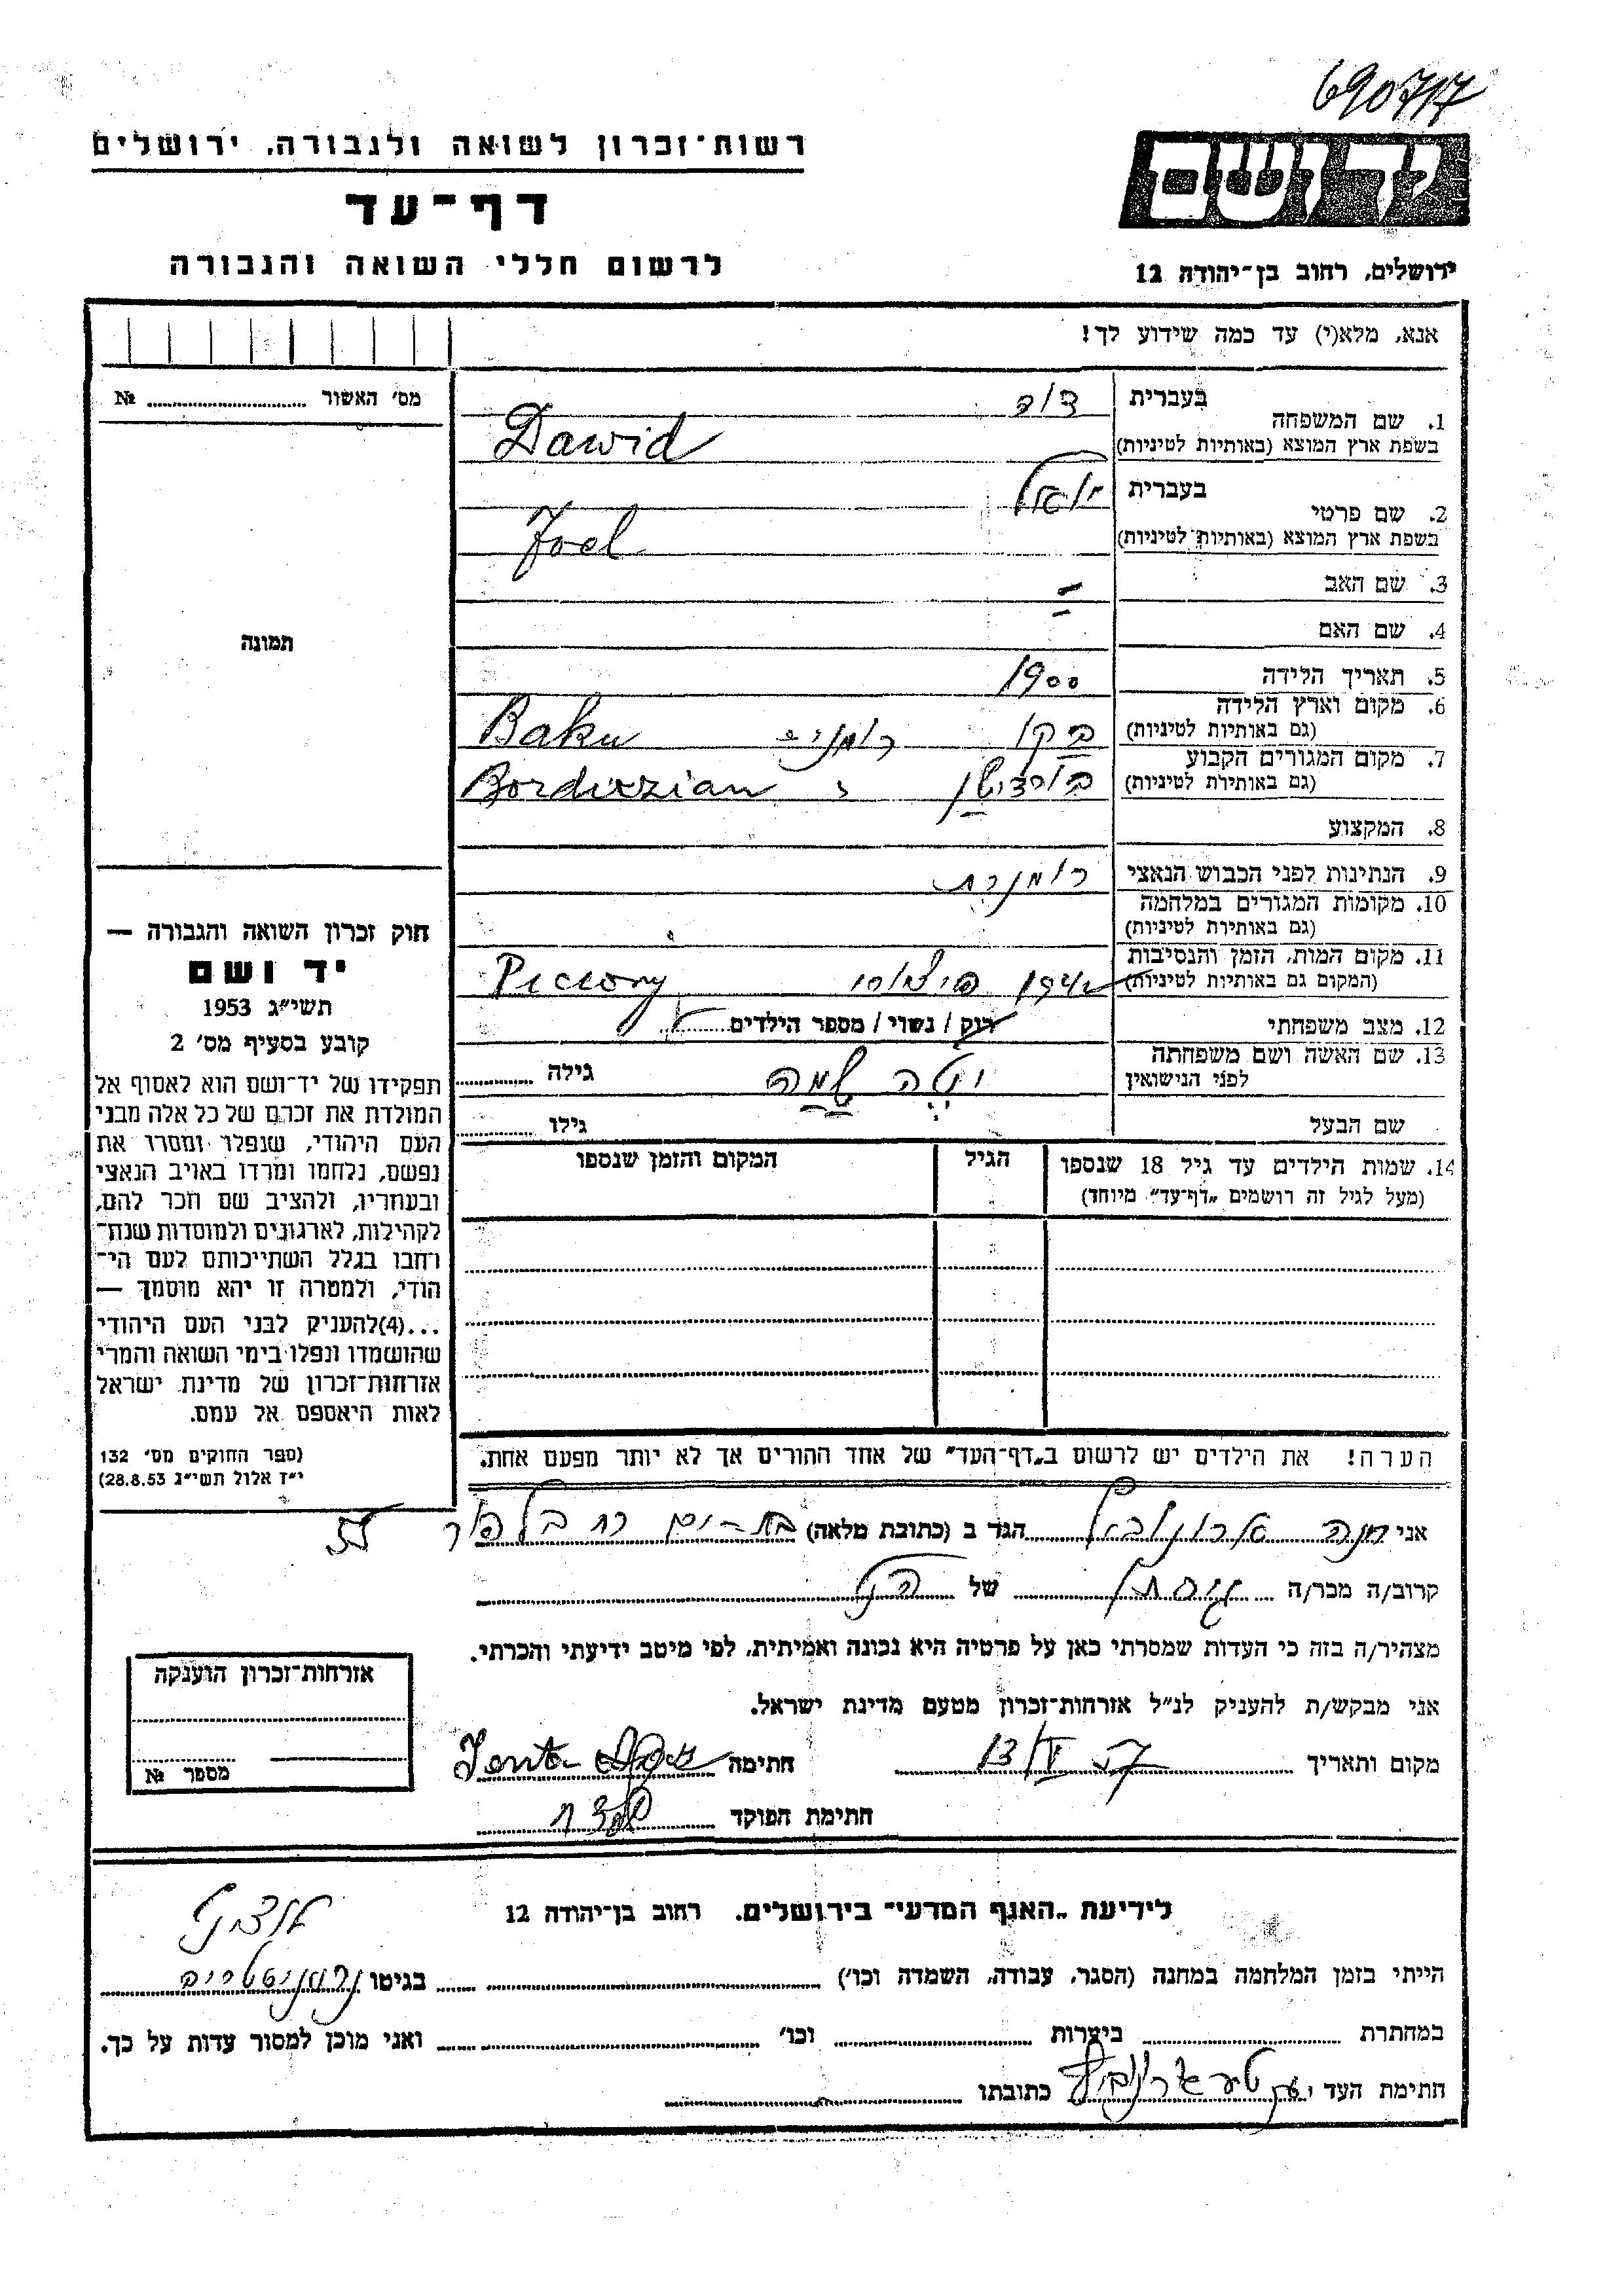 690717
רשות־זכרון לשואה ולגבורה, ירושלים
דף־עד
לרשום חללי השואה והגבורה
יד ושם
ירושלים, רחוב בן־יהודה 12
אנא, מלא(י) עד כמה שידוע לך!
מס׳ האשור № 
1. שם המשפחה
בעברית דוד
בשפת ארץ המוצא (באותיות לטיניות) Dawid
2. שם פרטי
בעברית יואל
בשפת ארץ המוצא (באותיות לטיניות) Joel
3. שם האב –
4. שם האם –
5. תאריך הלידה 1900
6. מקום וארץ הלידה
(גם באותיות לטיניות) בקו רומניה Baku
7. מקום המגורים הקבוע
(גם באותיות לטיניות)
8. המקצוע
9. הנתינות לפני הכבוש הנאצי רומנית
10. מקומות המגורים במלחמה
(גם באותיות לטיניות)
11. מקום המות, הזמן והנסיבות
(המקום גם באותיות לטיניות)
12. מצב משפחתי רווק / נשוי / מספר הילדים
13. שם האשה ושם משפחתה
לפני הנישואין
גילה
שם הבעל גילו
14. שמות הילדים עד גיל 18 שנספו
(מעל לגיל זה רושמים „דף־עד״ מיוחד)
הגיל
המקום והזמן שנספו
תמונה
חוק זכרון השואה והגבורה —
יד ושם
תשי״ג 1953
קובע בסעיף מס׳ 2
תפקידו של יד־ושם הוא לאסוף אל
המולדת את זכרם של כל אלה מבני
העם היהודי, שנפלו ומסרו את
נפשם, נלחמו ומרדו באויב הנאצי
ובעוזריו, ולהציב שם וזכר להם,
לקהילות, לארגונים ולמוסדות שנח־
רבו בגלל השתייכותם לעם הי־
הודי, ולמטרה זו יהא מוסמך —
...(4)להעניק לבני העם היהודי
שהושמדו ונפלו בימי השואה והמרי
אזרחות־זכרון של מדינת ישראל
לאות היאספם אל עמם.
(ספר החוקים מס׳ 132
י״ז אלול תשי״ג 28.8.53)
הערה! את הילדים יש לרשום ב„דף־העד״ של אחד ההורים אך לא יותר מפעם אחת.
אני הגר ב (כתובת מלאה) בת־ים רח בלפור
קרוב/ה מכר/ה של
מצהיר/ה בזה כי העדות שמסרתי כאן על פרטיה היא נכונה ואמיתית, לפי מיטב ידיעתי והכרתי.
אני מבקש/ת להעניק לנ״ל אזרחות־זכרון מטעם מדינת ישראל.
מקום ותאריך 13/V 57 חתימה
חתימת הפוקד
אזרחות־זכרון הוענקה
מספר №
לידיעת „האגף המדעי״ בירושלים, רחוב בן־יהודה 12
הייתי בזמן המלחמה במחנה (הסגר, עבודה, השמדה וכו׳) בגיטו
במחתרת ביערות וכו׳ ואני מוכן למסור עדות על כך.
חתימת העד כתובתו